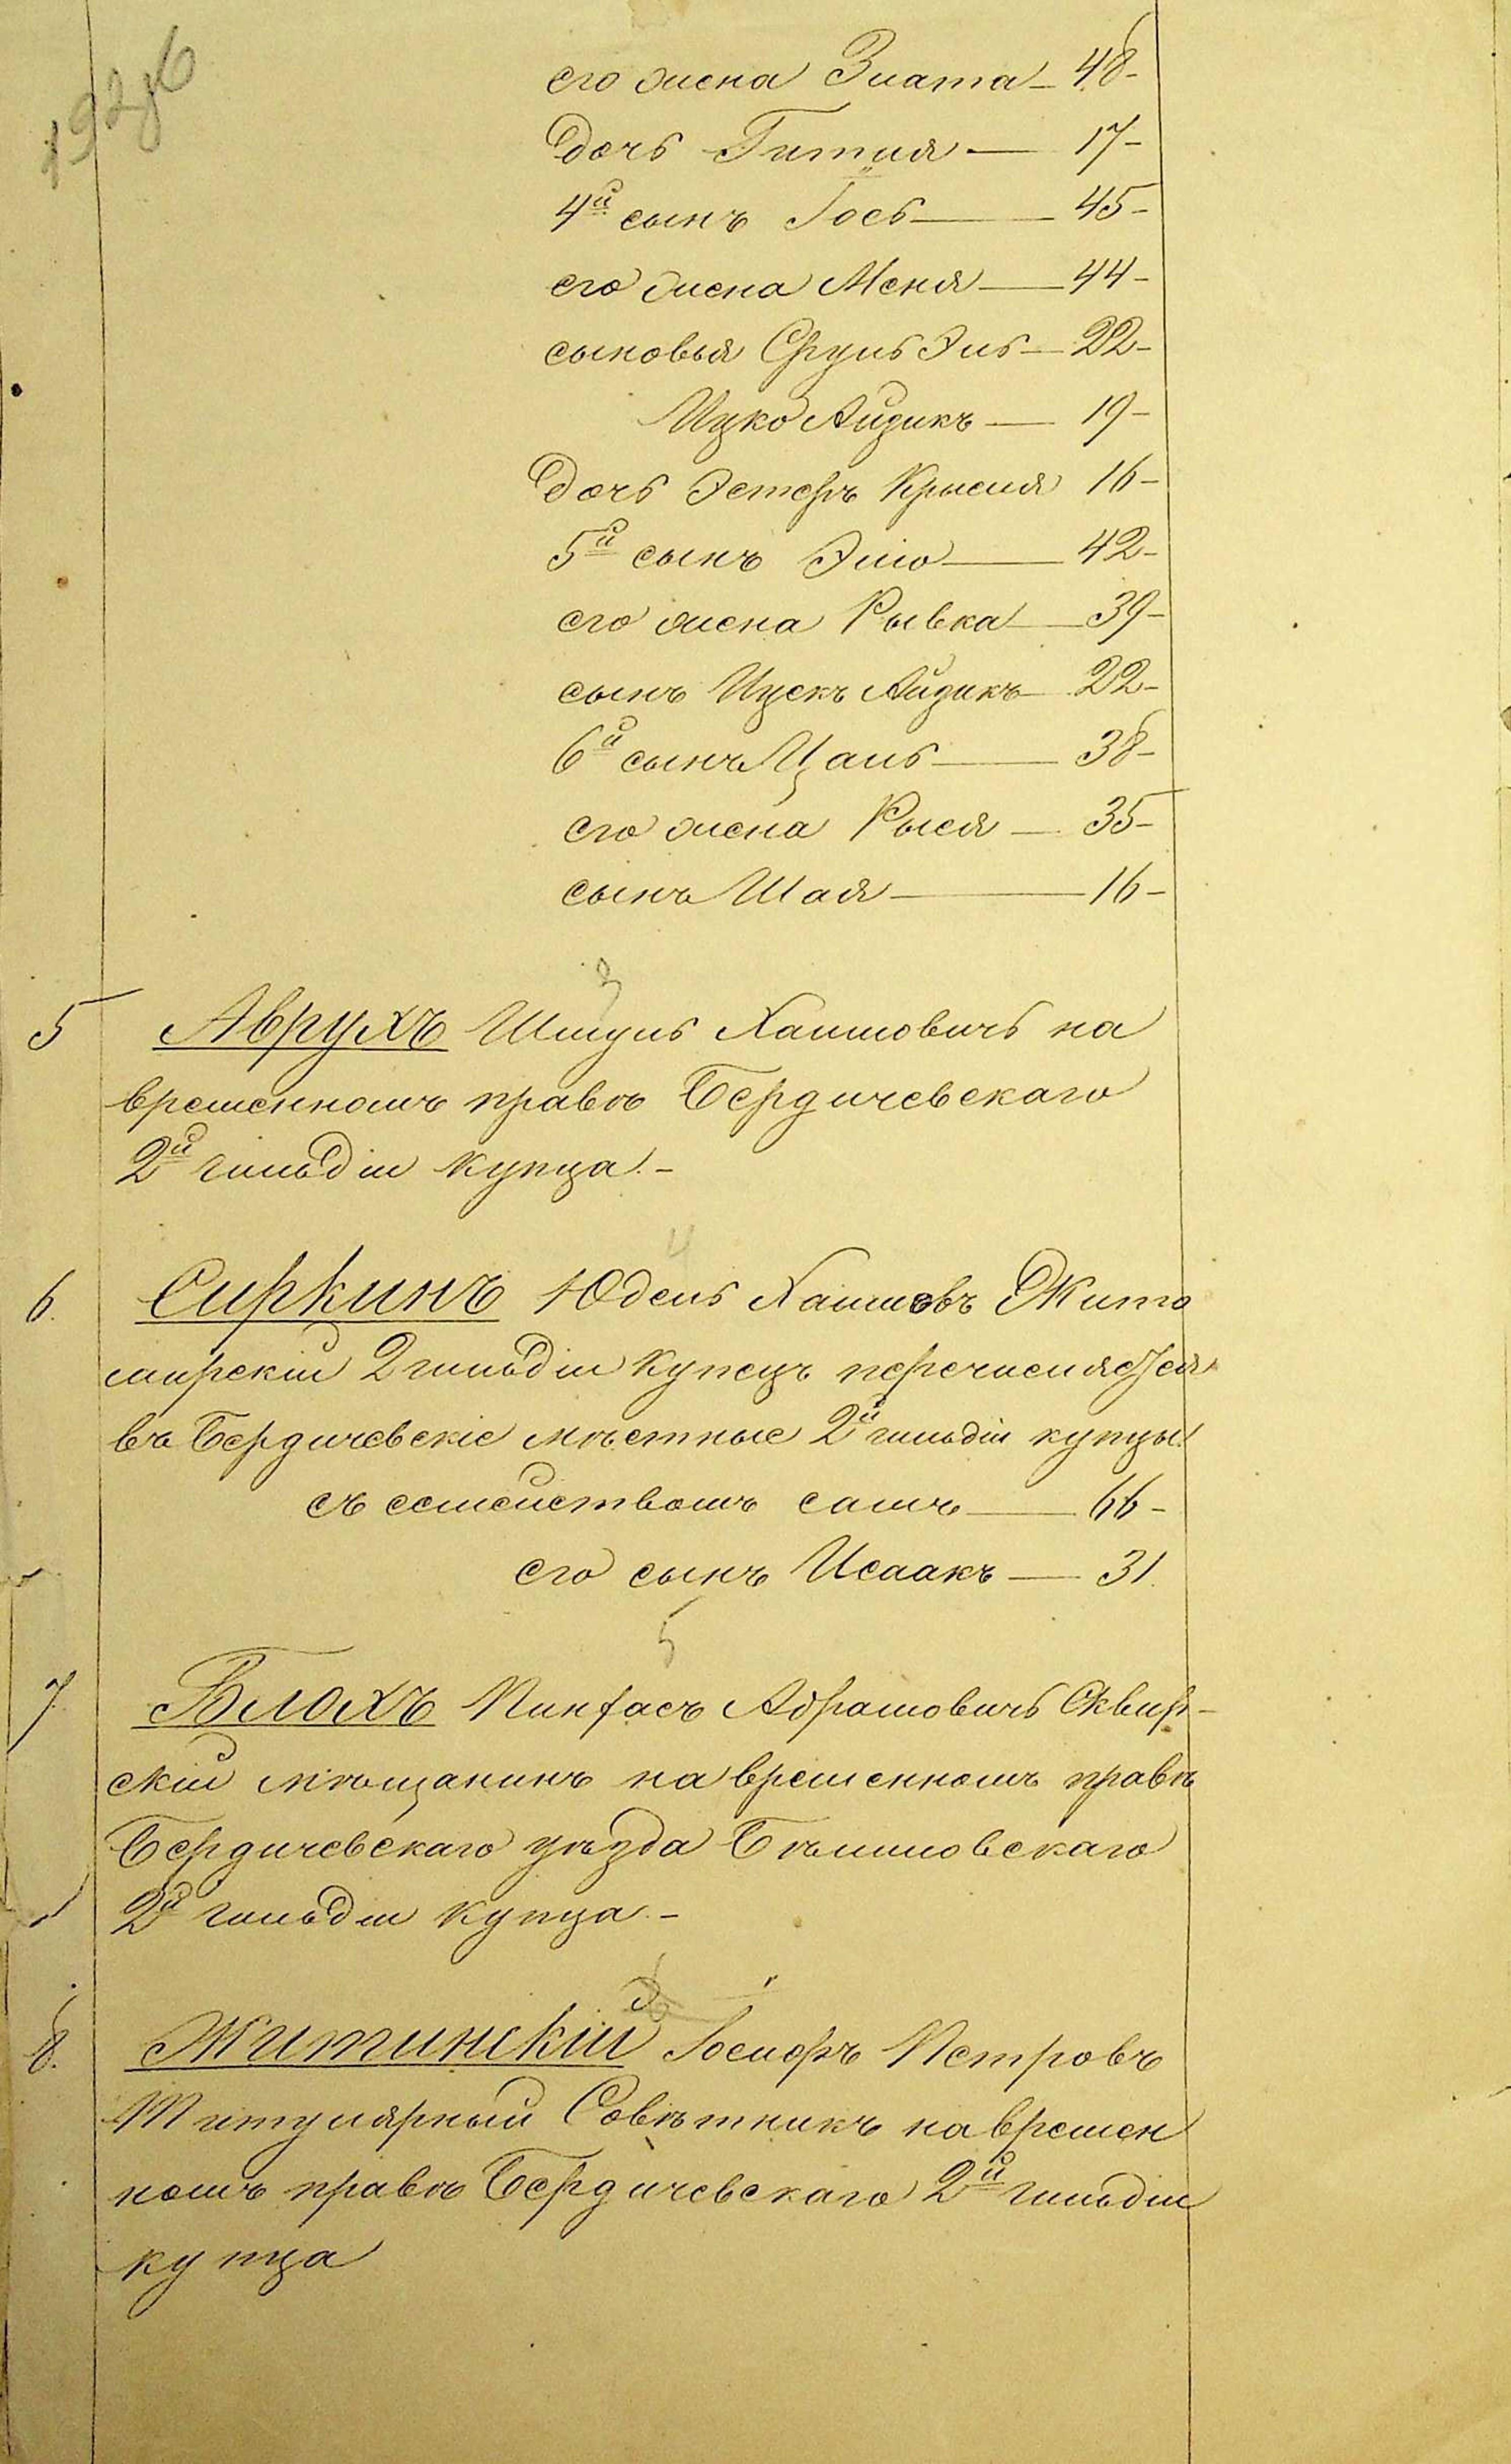 его жена Злата — 48 —
дочь Гитля — 17 —
4й сынъ Іось — 45 —
его жена Меня — 44 —
сыновья Сруль Эль — 22 —
Ицко Айзикъ — 19 —
дочь Эстеръ Крысля 16 —
5й сынъ Элiо — 42 —
его жена Рывка — 39 —
сынъ Ицекъ Айзикъ — 22 —
6й сынъ Цаль — 38 —
его жена Рыся — 35 —
сынъ Шая — 16 —
3
5 Аврухъ Шмуль Хаимовичъ на
временномъ правѣ Бердичевскаго
2й гильдіи купца. —
4
6. Сиркинъ Юдель Хаимовъ Жито
мирскій 2 гильдіи купецъ перечисляется
въ Бердичевскіе мѣстные 2й гильдіи купцы
съ семействомъ самъ — 66 —
его сынъ Исаакъ — 31.
5
7. Блохъ Пинхасъ Абрамовичъ Сквир-
скій мѣщанинъ на временномъ правѣ
Бердичевскаго уѣзда Бѣлиловскаго
2й гильдіи купца. —
8. Житинскій Іосифъ Петровъ
Титулярный Совѣтникъ на времен
номъ правѣ Бердичевскаго 2й гильдіи
купца